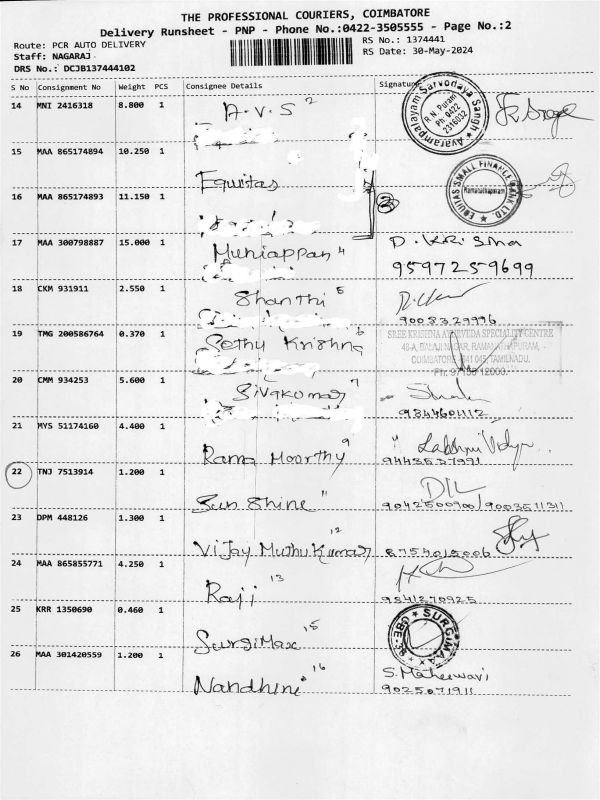 THE PROFESSIONAL COURIERS, COIMBATORE
Delivery Runsheet - PNP - Phone No.:0422-3505555 - Page No.:2
Route: PCR AUTO DELIVERY
RS No.: 1374441
Staff: NAGARAJ.
RS Date: 30-May-2024
DRS No.: DCJB137444102
S No Consignment No Weight PCS Consignee Details Signature
14 MNI 2416318 8.800 1 A.V.S 2
Avarampalayam Sarvodaya Sangh
R.N. Puram
Ph: 0422
2316032
15 MAA 865174894 10.250 1
Equitas
EQUITAS SMALL FINANCE BANK LTD.
Ramanathapuram
16 MAA 865174893 11.150 1
3
17 MAA 300798887 15.000 1 Muniappan 4
D. KRISHNA
9597259699
18 CKM 931911 2.550 1 Shanthi 5
9008329996
19 TMG 200586764 0.370 1 Sethu Krishna 6
SREE KRISHNA AYURVEDA SPECIALITY CENTRE
48-A, BALAJI NAGAR, RAMANATHAPURAM,
COIMBATORE - 641 045, TAMILNADU.
Ph: 97150 12000.
20 CMM 934253 5.600 1 Sivakumar 7
9844601112
21 MYS 51174160 4.400 1
Rama Moorthy 9
Lakshmi Vidya
22 TNJ 7513914 1.200 1
Sun Shine 11
9042500900/9003511311
23 DPM 448126 1.300 1
Vijay Muthu Kumar 12
8754015006
24 MAA 865855771 4.250 1
Raji 13
9841270925
25 KRR 1350690 0.460 1
SurgiMax 15
SURGIMAX
CBE-
26 MAA 301420559 1.200 1
Nandhini 16
S. Maheswari
9025071911